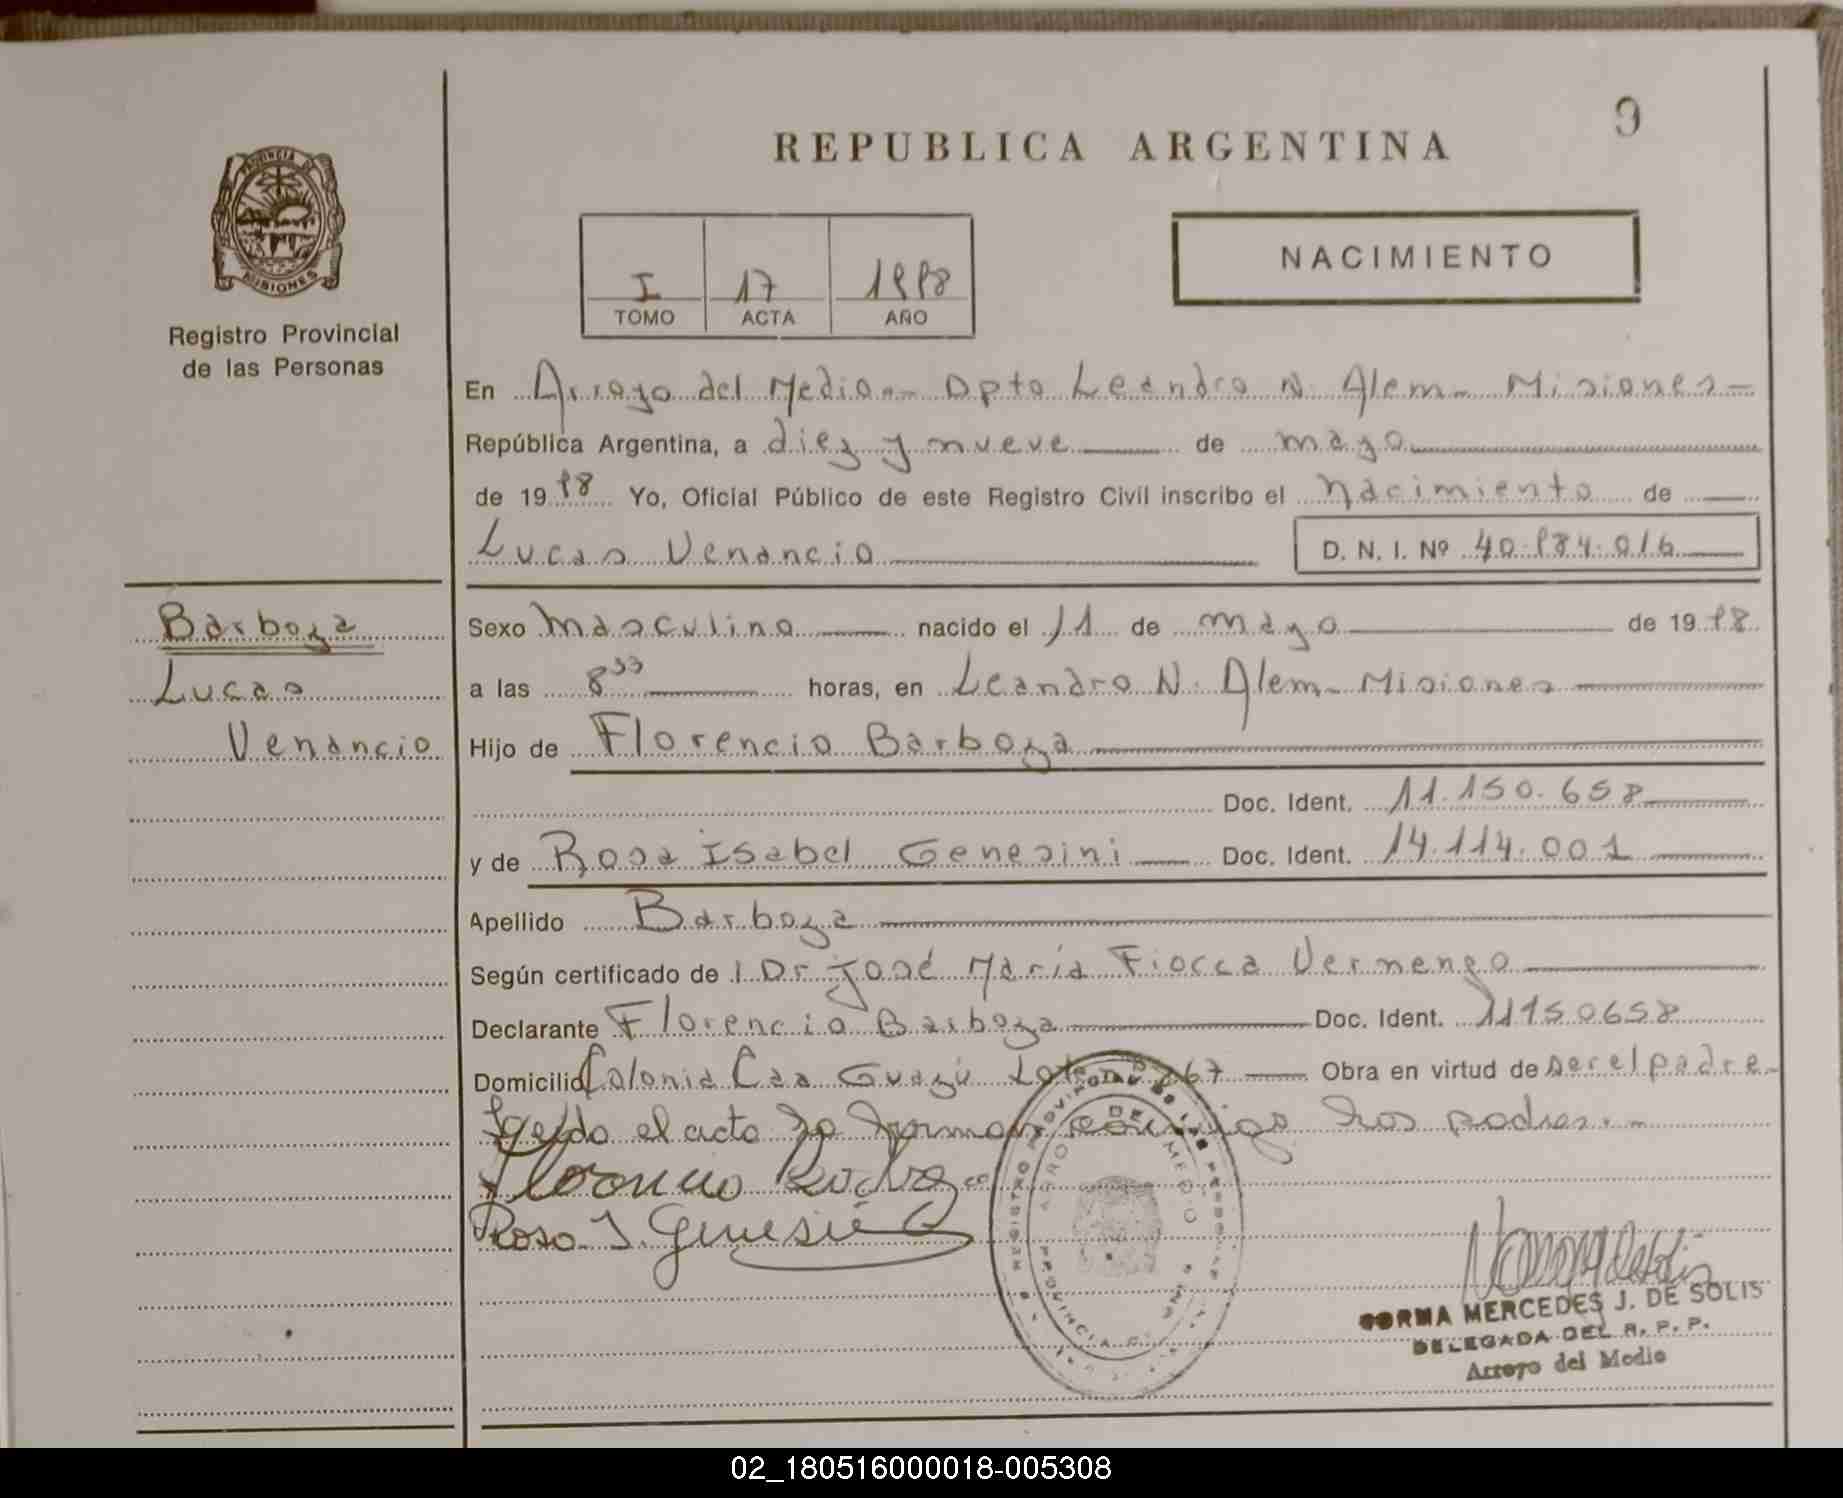 9
REPUBLICA ARGENTINA
PROVINCIA DE
MISIONES
Registro Provincial
de las Personas
I 17 1998
TOMO ACTA AÑO
NACIMIENTO
En Arroyo del Medio.- Dpto Leandro N. Alem- Misiones-
República Argentina, a diez y nueve de mayo
de 1998 Yo, Oficial Público de este Registro Civil inscribo el Nacimiento de
Lucas Venancio D. N. I. Nº 40.984.016
Barboza
Lucas
Venancio
Sexo Masculino nacido el 11 de mayo de 1998
a las 8 33 horas, en Leandro N. Alem- Misiones
Hijo de Florencio Barboza
Doc. Ident. 11.150.658
y de Rosa Isabel Genesini Doc. Ident. 14.114.001
Apellido Barboza
Según certificado de Dr José María Fiocca Vernengo
Declarante Florencio Barboza Doc. Ident. 11150658
Domicilio Colonia Caa Guazú Lote 67 Obra en virtud de ser el padre-
Leído el acto lo firman conmigo los padres.-
Rosa I. Genesini
NORMA MERCEDES J. DE SOLIS
DELEGADA DEL R. P. P.
Arroyo del Medio
02_180516000018-005308